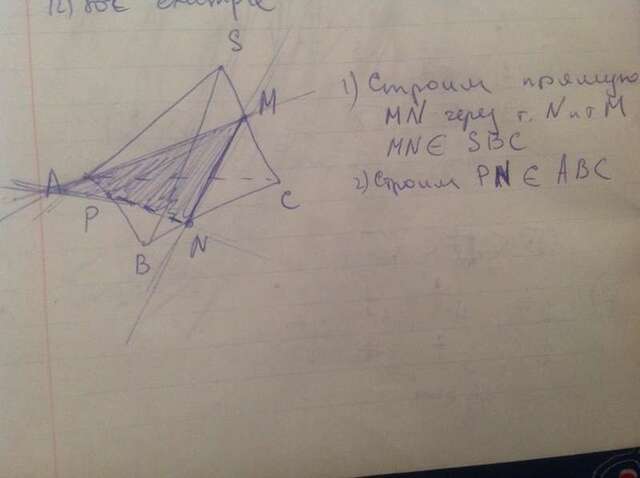 S
M
A
P
B
N
C
1) Строим прямую
MN через т. N и т M
MN ∈ SBC
2) Строим PN ∈ ABC